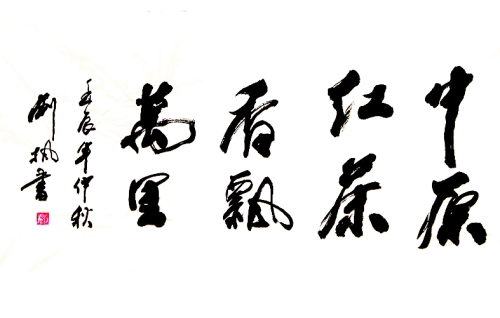 中原
红茶
香飘
萬里
壬辰年仲秋
刘枫书